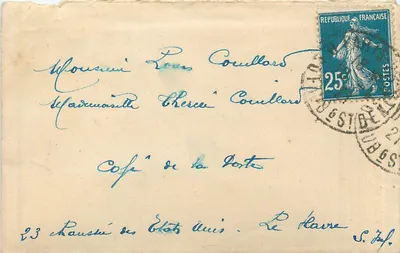 REPUBLIQUE FRANÇAISE
25c
POSTES
Monsieur Louis Couillard
Mademoiselle Thérèse Couillard
Café de la Poste
23 chaussée des Etats Unis. Le Havre
S. Inf.